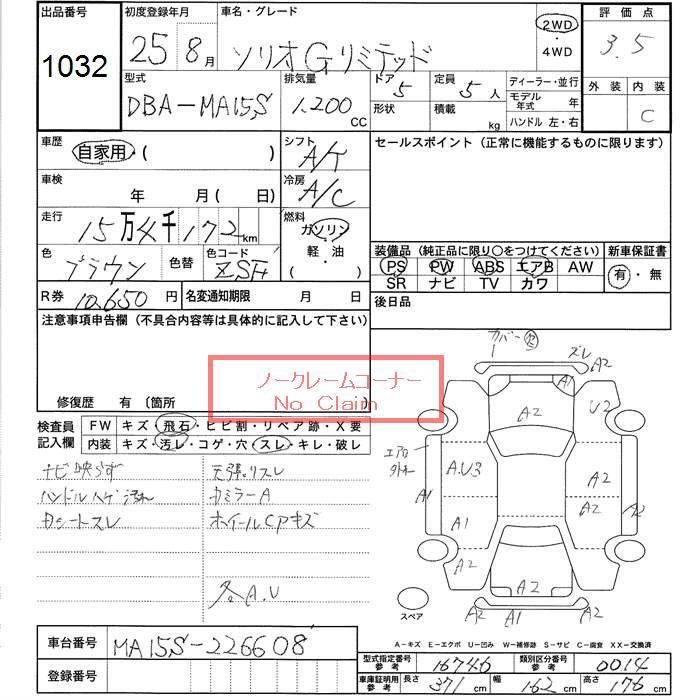 出品番号 初度登録年月 車名・グレード 評価点
1032 25 8月 ソリオGリミテッド 2WD・4WD 3.5
型式 排気量 ドア 定員 ディーラー・並行 外装 内装
DBA-MA15S 1,200CC 5 5人 モデル年式 年 C
形状 積載 kg ハンドル 左・右
車歴 自家用・( ) シフト A/T セールスポイント(正常に機能するものに限ります)
車検 年 月(日) 冷房 A/C
走行 15万4千172km 燃料 ガソリン・軽・油・( )
色 ブラウン 色替 色コード ZSH
装備品(純正品に限り〇をつけてください) 新車保証書
PS PW ABS エアB AW 有・無
SR ナビ TV カワ
R券 10,650円 名変通知期限 月 日 後日品
注意事項申告欄(不具合内容等は具体的に記入して下さい)
ノークレームコーナー
No Claim
修復歴 有〔箇所
検査員記入欄 FW キズ・飛石・ヒビ割・リペア跡・X要
内装 キズ・汚レ・コゲ・穴・スレ・キレ・破レ
ナビ映らず 天張りスレ
ハンドルハゲ汚れ カミラーA
カシートスレ ホイールCAPキズ
各A.U
カバー ズレ
A2 A1 A2 U2
エアロ外れ
A1 A.U3 A2 A2
A1 A2
A2 A2 A2
スペア A2 A1 A2
A-キズ E-エクボ U-凹み W-補修跡 S-サビ C-腐食 XX-交換済
車台番号 MA15S-226608
登録番号
型式指定番号参考 16746 類別区分番号参考 0014
車庫証明用参考 長さ 371cm 幅 162cm 高さ 176cm